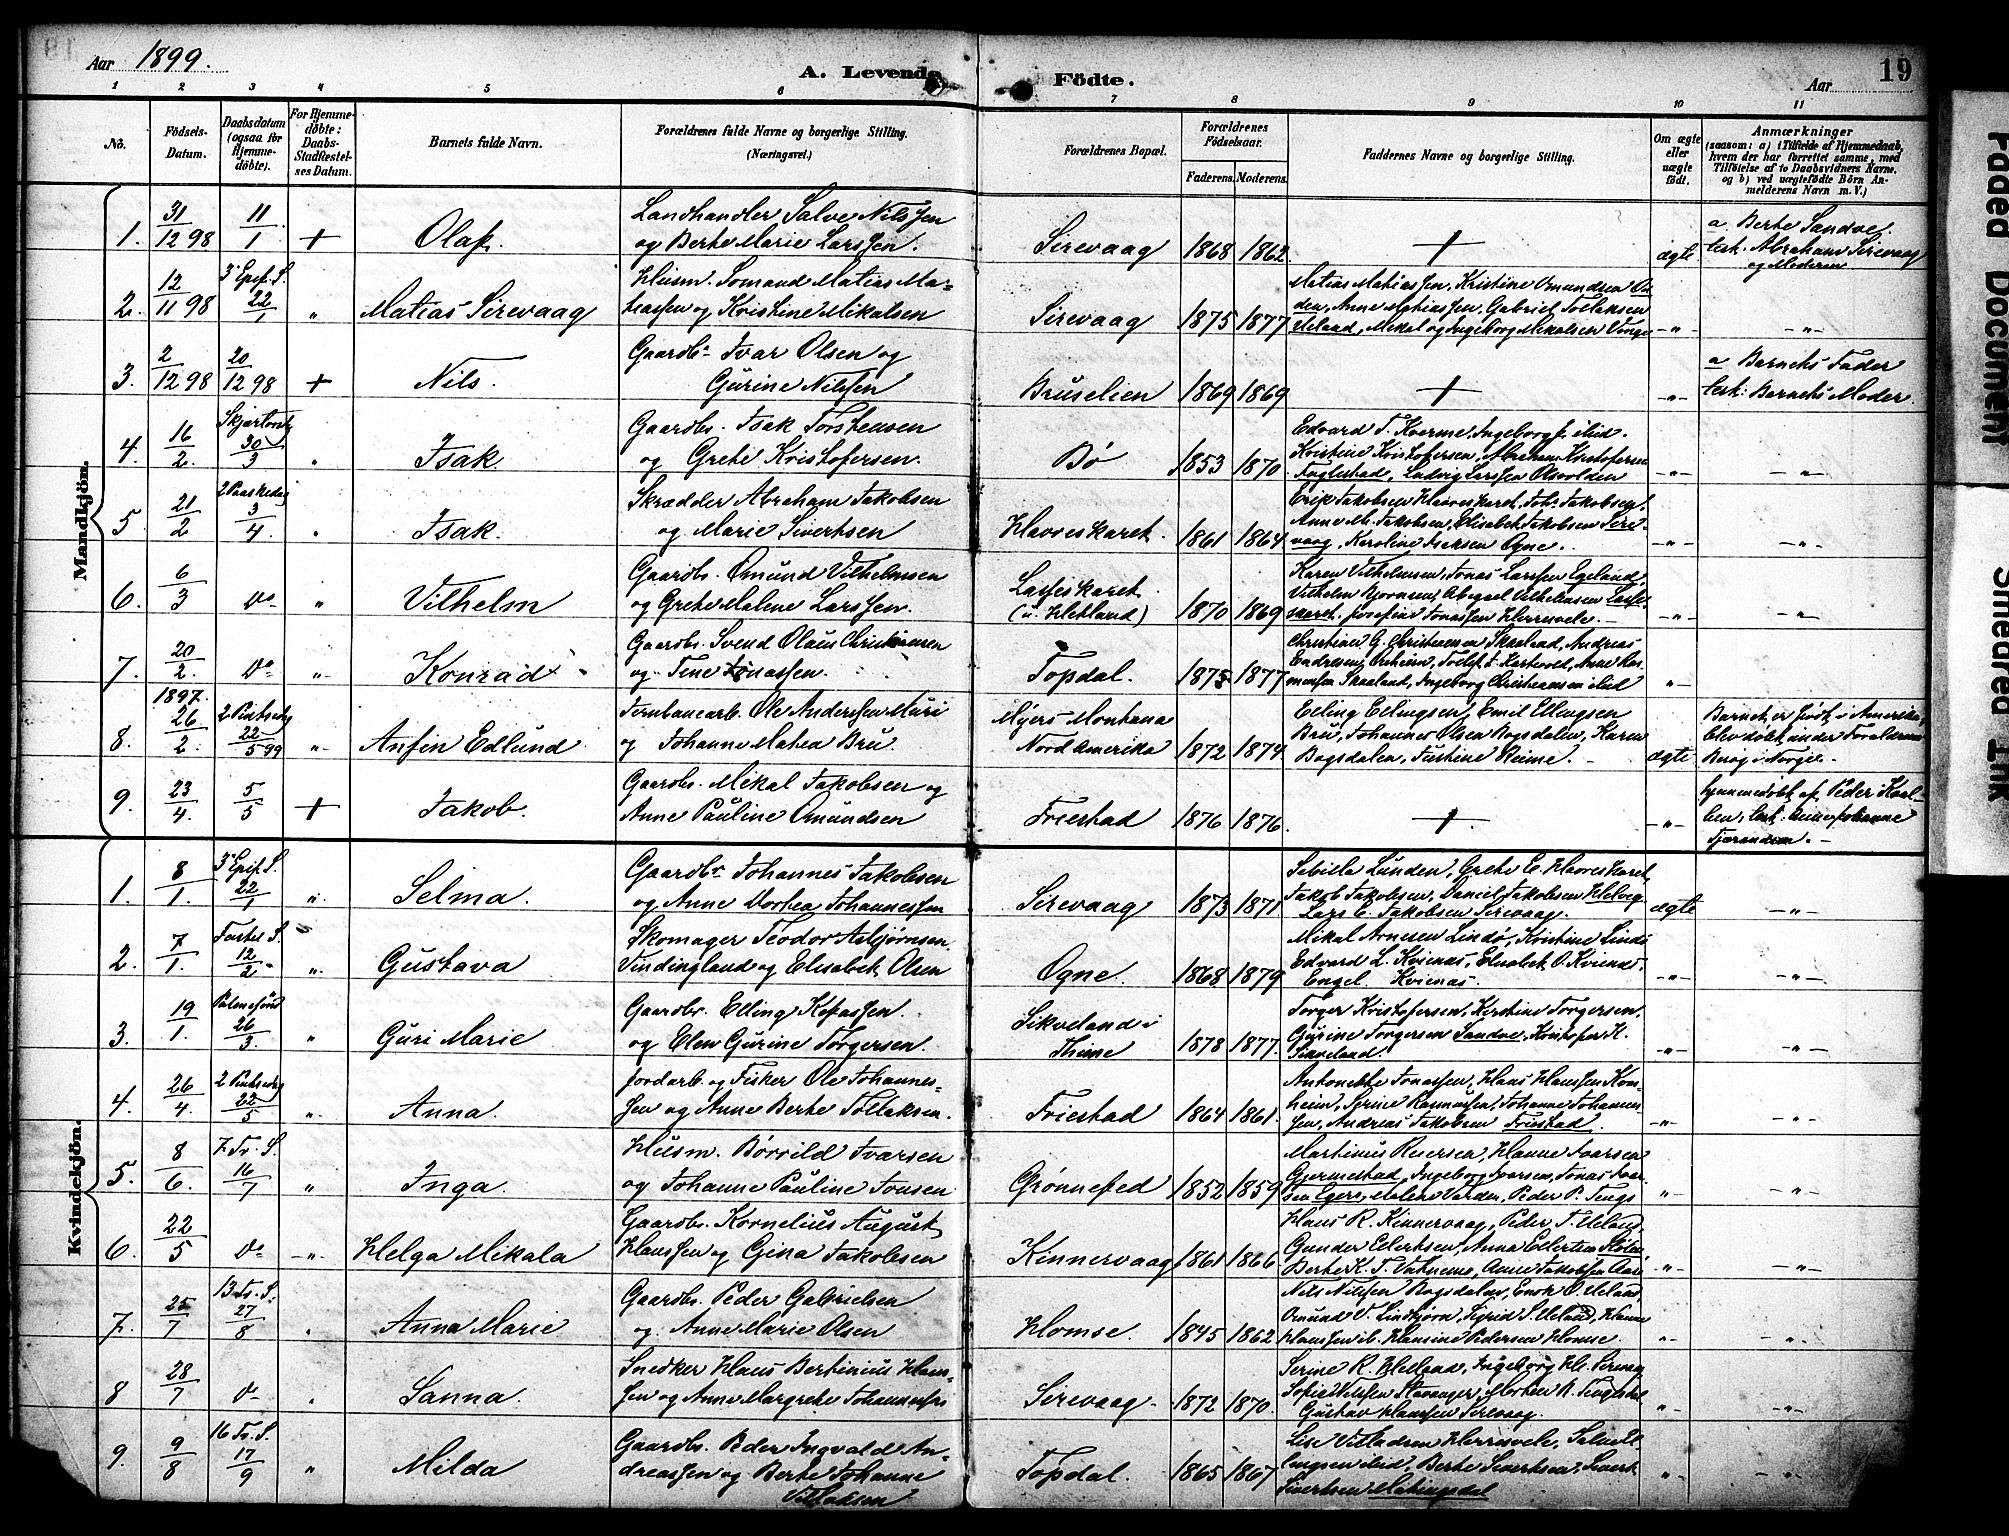 Aar 1899.
A. Levende Födte.
Aar
19
1 2 3 4 5 6 7 8 9 10 11
No.
Födsels-Datum.
Daabsdatum (ogsaa for Hjemmedöbte).
For Hjemmedöbte: Daabs-Stadfæstelses Datum.
Barnets fulde Navn.
Forældrenes fulde Navne og borgerlige Stilling. (Næringsvei.)
Forældrenes Bopæl.
Forældrenes Födselsaar.
Faderens. Moderens.
Faddernes Navne og borgerlige Stilling.
Om ægte eller uægte födt.
Anmærkninger
(saasom: a) i Tilfælde af Hjemmedaab, hvem der har forrettet samme, med Tilföielse af to Daabsvidners Navne. og b) ved uægtefödte Börn Anmelderens Navn m. V.)
Mandkjön.
1. 31/12 98 11/1 + Olaf. Landhandler Salve Nilssen
og Berte Marie Larssen. Sirevaag 1868 1862 + ægte a Berte Sandve.
test. Abraham Sirevaag
og Moderen
2. 12/11 98 3' Epif. S. 22/1 " Matias Sirevaag Husm. Tomand Matias Ma-
tiassen og Kristine Mikalsen Sirevaag 1875 1877 Matias Matiassen, Kristine Omundsen
Anne Matiassen, Gabriel Tollaksen
Mikal og Ingeborg Mikalsen -"- -"-
3. 2/12 98 20/12 98 + Nils. Gaardbr Ivar Olsen og
Gurine Nilssen Bruselien 1869 1869 + -"- a Barnets Fader
test: Barnets Moder.
4. 16/2. Skjærtorsd. 30/3 " Isak Gaardbr. Isak Torstensen
og Grete Kristofersen. Bø 1853 1870 Edvard T. Kverme, Ingeborg ibid.
Kristine Kristofersen, Abraham Kristofersen
Fuglestad, Ludvig Larssen -"- -"-
5. 21/2 2 Paaskedag 3/4. " Isak. Skrædder Abraham Jakobsen
og Marie Sivertsen Havreskaret. 1861 1864 Erik Jakobsen Havreskaret, Joh. Jakobsen,
Anne M. Jakobsen, Elisabet Jakobsen Sire-
vaag, Karoline Isaksen Ogne. -"- -"-
6. 6/3 Do " Vilhelm Gaardbr. Omund Vilhelmsen
og Grete Malene Larssen. Lasseskaret
(u. Hetland) 1870 1869 Karen Vilhelmsen, Jonas Larssen Egeland,
Vilhelm Bjørnsen, Abigael Vilhelmsen Lasse-
skaret, Josefine Jonassen Herresvele. -"- "
7. 20/2. Do " Konrad Gaardbr. Svend Olaus Christiansen
og Tene Jonassen. Topdal. 1875 1877 Christian G. Christensen Skaaland, Andreas
Endresen, Tollef T. Hartvold, Anne Ras-
mussen Skaaland, Ingeborg Christiansen ibid "
8. 1897. 26/2. 2 Pintsedag 22/5 99 " Anfin Edlund Jernbanearb. Ole Anderssen Muri
og Johanne Matea Bru Myers Montana
Nord Amerika 1872 1874 Elling Ellingsen, Emil Ellingsen
Bru, Johannes Olsen Bogsdalen, Karen
Bogsdalen, Justine Reime. ægte Barnet er født i Amerika,
blev døbt under Forældrenes
Besøg i Norge.
9. 23/4. 5/5 + Jakob. Gaardbr. Mikal Jakobsen og
Anne Pauline Omundsen Friestad 1876 1876. + -"- hjemmedøbt af Peder Kaal-
hen, test: Anne Johanne
Tjærandsen.
Kvindekjön.
1. 8/1. 3' Epif. S. 22/1 " Selma. Gaardbr Johannes Jakobsen
og Anne Dortea Johannessen Sirevaag 1873 1871 Sibille Lunden, Grete E. Havreskaret,
Jakob Jakobsen, Daniel Jakobsen Helvig
Lars E. Jakobsen Sirevaag. ægte -"-
2. 7/1. Fastel. S. 12/2 " Gustava Skomager Teodor Asbjørnsen
Vindingland og Elisabet Olsen Ogne 1868 1879 Mikal Arnesen Lindø, Kristine Lindø
Edvard L. Kvienas, Elisabet O. Kvienas,
Engel Kvienas. -"- -"-
3. 19/1. Palmesønd 26/3. " Guri Marie Gaardbr. Elling Kefassen.
og Elen Gurine Torgersen. Sikveland i
Thime 1878 1877. Torger Kristofersen, Kirstine Torgersen,
Gurine Torgersen Sandve, Kristofer H.
Sikveland. -"- -"-
4. 26/4. 2 Pintsedag 22/5 " Anna. Jordarb. og Fisker Ole Johannes-
sen og Anne Berte Tollaksen. Friestad 1864 1861. Antonette Jonassen, Hans Hanssen Kom-
heim, Syrine Rasmussen, Johanne Johannes-
sen, Andreas Jakobsen Friestad. -"- -"-
5. 8/6. 7. Tr. S. 16/7 " Inga Husm. Børrild Ivarsen
og Johanne Pauline Jonsen Grønnefed 1852 1859 Martinus Reiersen, Hanne Ivarsen
Gjermestad, Ingeborg Ivarsen, Jonas Ivar-
sen Egere, Malene Varden, Peder P. Tengs "- -"-
6. 22/5 Do -"- Helga Mikala Gaardbr. Kornelius August
Hanssen og Gina Jakobsen Kinnervaag 1861 1866 Hans R. Kinnervaag, Peder T.
Gunder Eilertsen, Anna Eilertsen
Berte K. T. Vatnemo, Anne Jakobsen -"- -"-
7. 25/7 13 Tr. S. 27/8 " Anna Marie Gaardbr. Peder Gabrielsen
og Anne Marie Olsen Homse. 1845 1862 Nils Nilssen Bogsdalen, Enok O.
Omund V. Lindbjørn, Sigrid S. Hanne
Hanssen ib. Hansine Pedersen Homse. -"- -"-
8 28/7 Do " Sanna Snedker Hans Bertinius Hans-
sen og Anne Margrete Johannessen Sirevaag. 1872 1870. Serine R. Ingeborg H.
Sofie Nilssen Stavanger, Morten R.
Gustav Hanssen Sirevaag. "- -"-
9. 9/8 16 Tr. S. 17/9 " Milda Gaardbr. Peder Ingvald An-
dreassen og Berte Johanne
Villaksen Topdal. 1865 1867 Lise Villadsen Herresvele,
ibid, Berte Sivertsen, Sivert
Sivertsen Matingsdal "- -"-
Faded Document
Smeared Ink